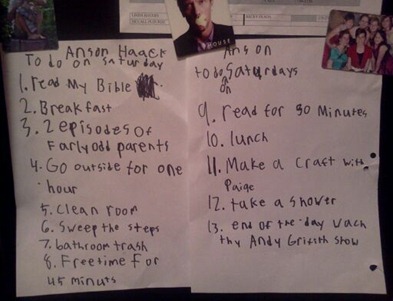 Anson Haack
To do on Saturday
1. read My Bible
2. Breakfast
3. 2 episodes of
Farlyodd parents
4. Go outside for one
hour
5. clean room
6. Sweep the steps
7. bathroom trash
8. Freetime For
45 minuts
HOUSE
Anson
to do Saturdays
on
9. read for 30 Minutes
10. lunch
11. Make a craft with
Paige
12. take a shower
13. end of the day wach
thy Andy Grifith show